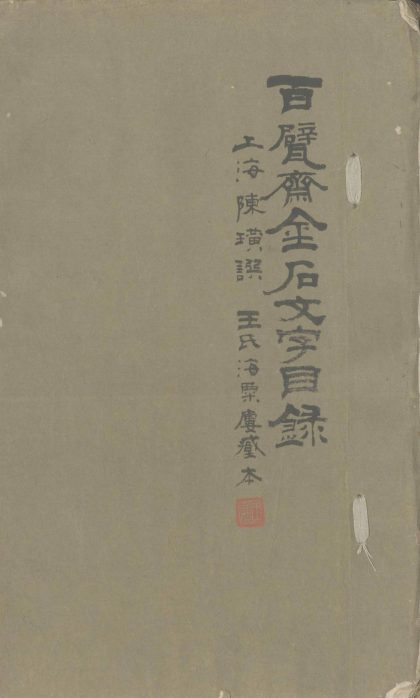 百甓齋金石文字目錄
上海陳璜譔 王氏海粟廔藏本